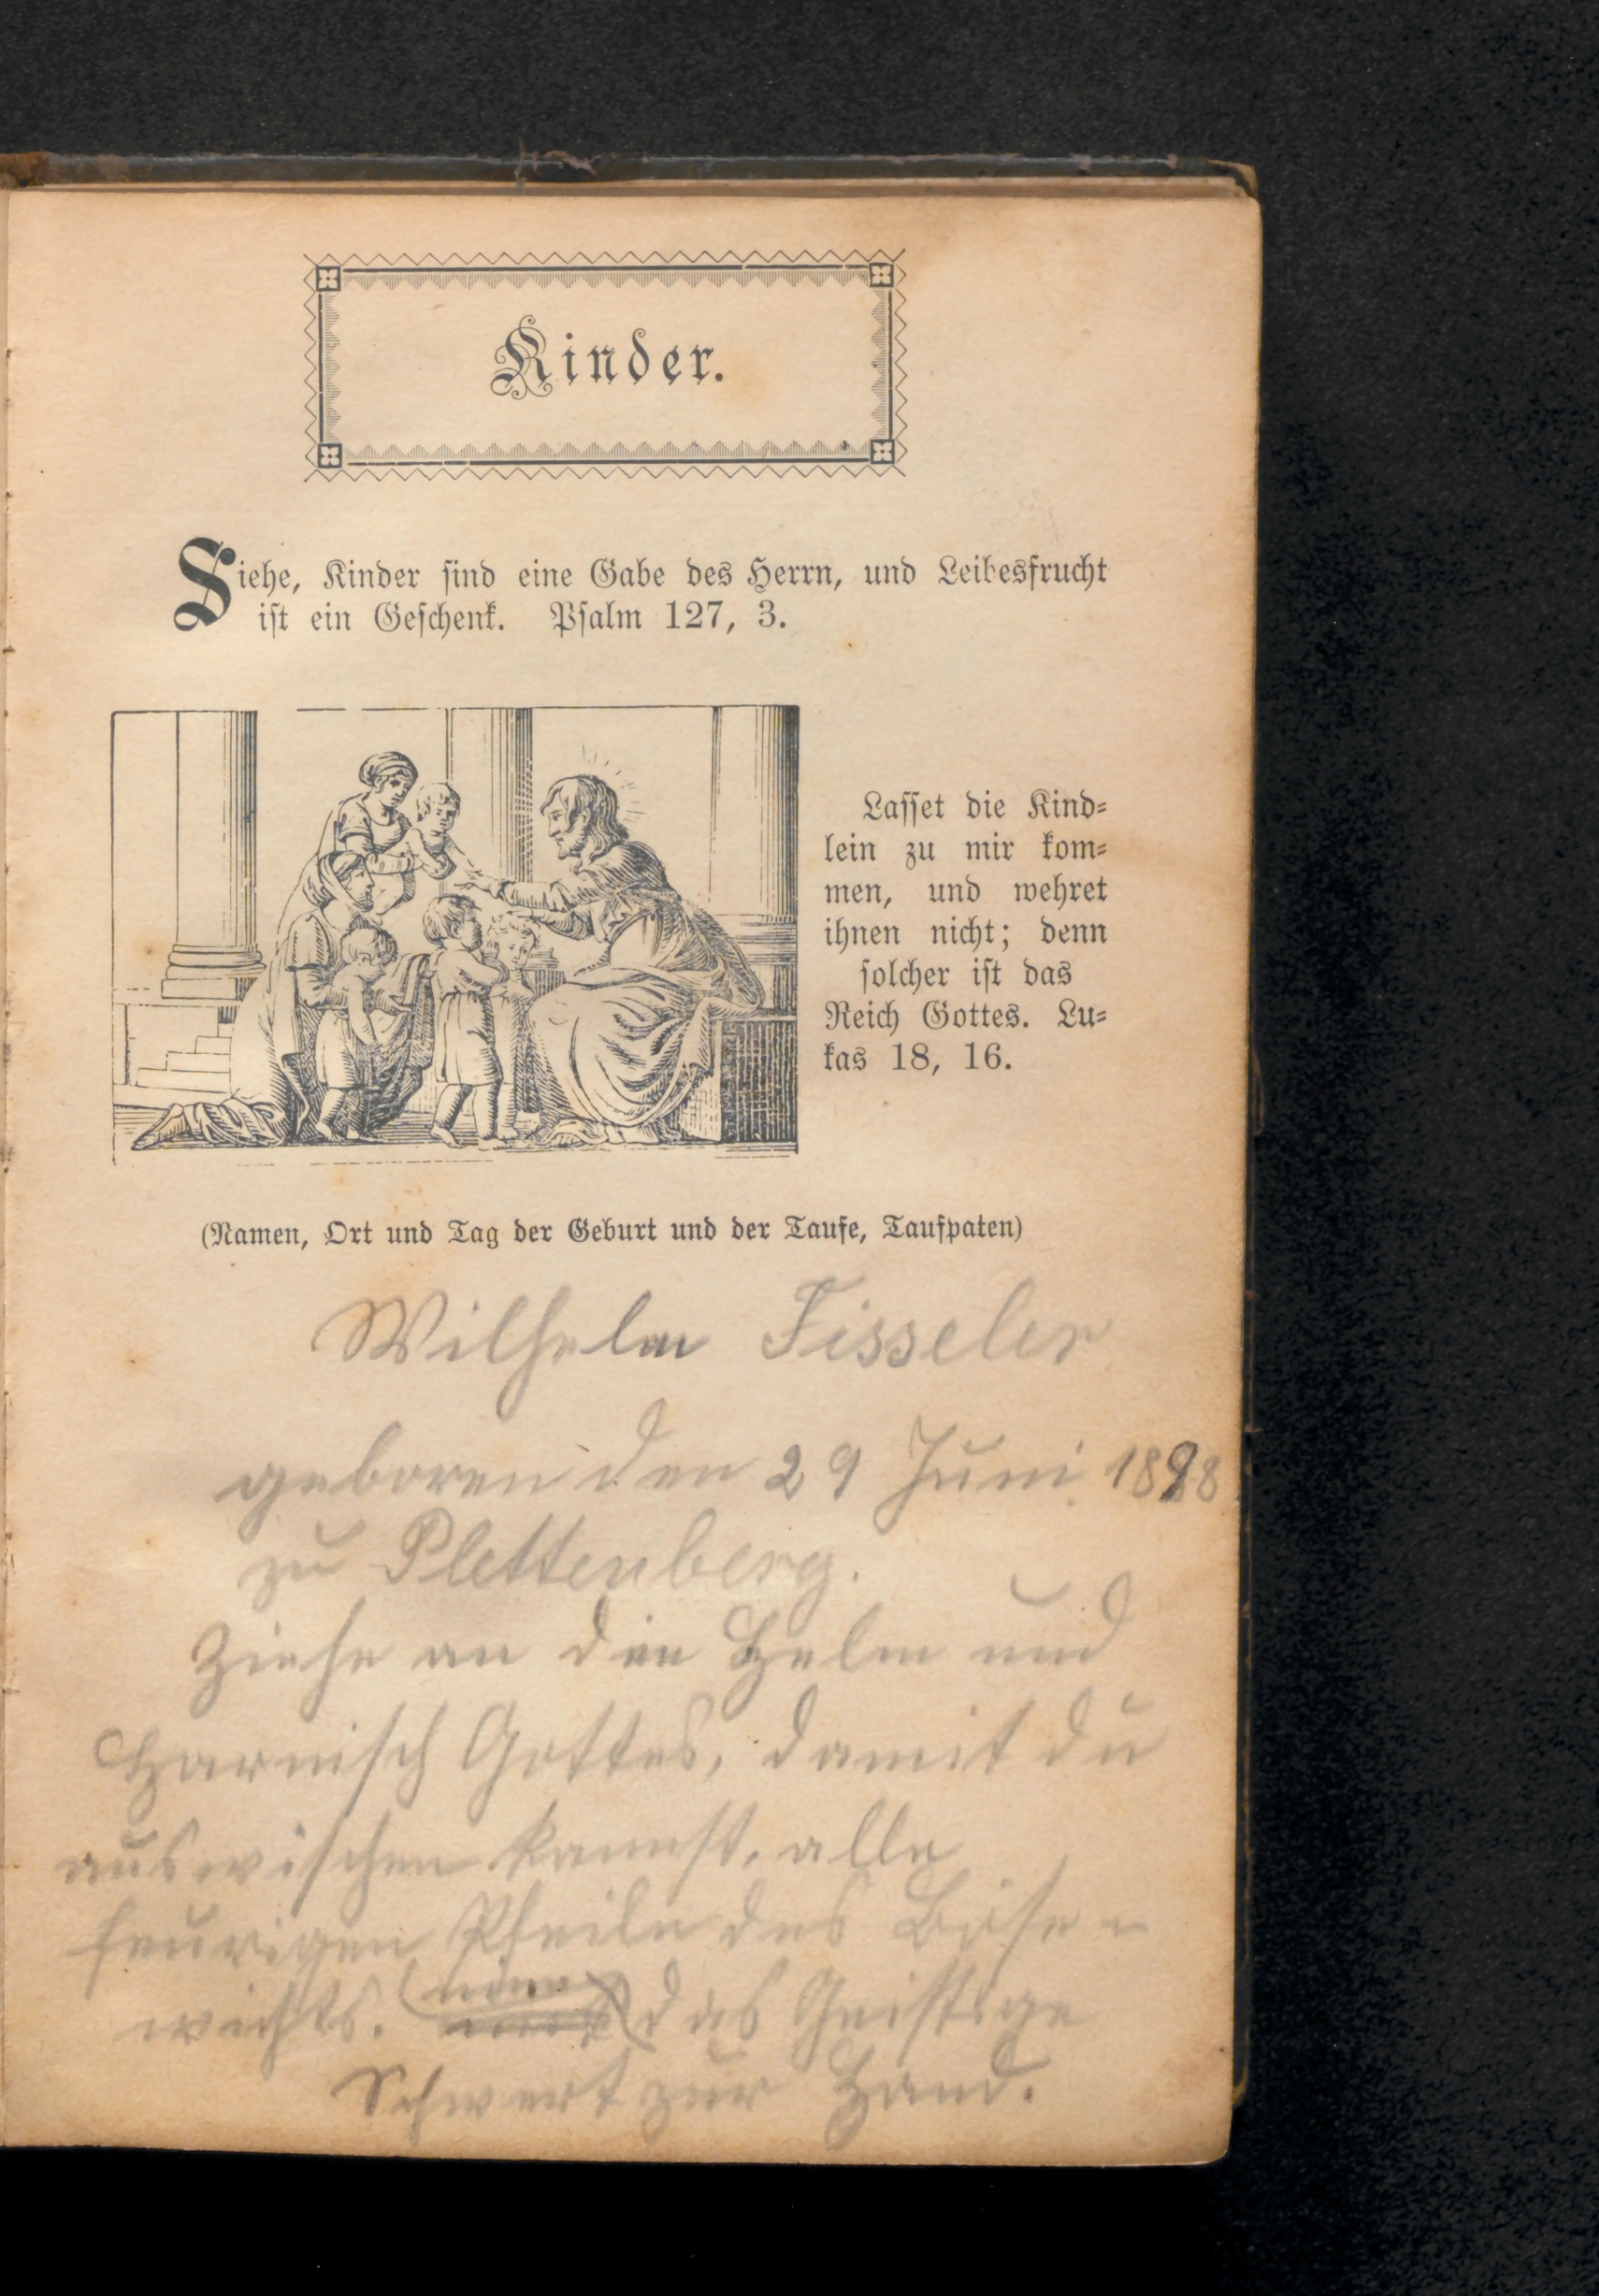 Kinder.
Siehe, Kinder sind eine Gabe des Herrn, und Leibesfrucht
ist ein Geschenk. Psalm 127, 3.
Lasset die Kind=
lein zu mir kom=
men, und wehret
ihnen nicht; denn
solcher ist das
Reich Gottes. Lu=
kas 18, 16.
(Namen, Ort und Tag der Geburt und der Taufe, Taufpaten)
Wilhelm Fisseler
geboren den 29 Juni 1898
zu Plettenberg.
Ziehe an den Helm und
Harnisch Gottes, damit du
auswischen kannst, alle
feurigen Pfeile des Böse=
wichts. das Geistige
Schwert zur Hand.